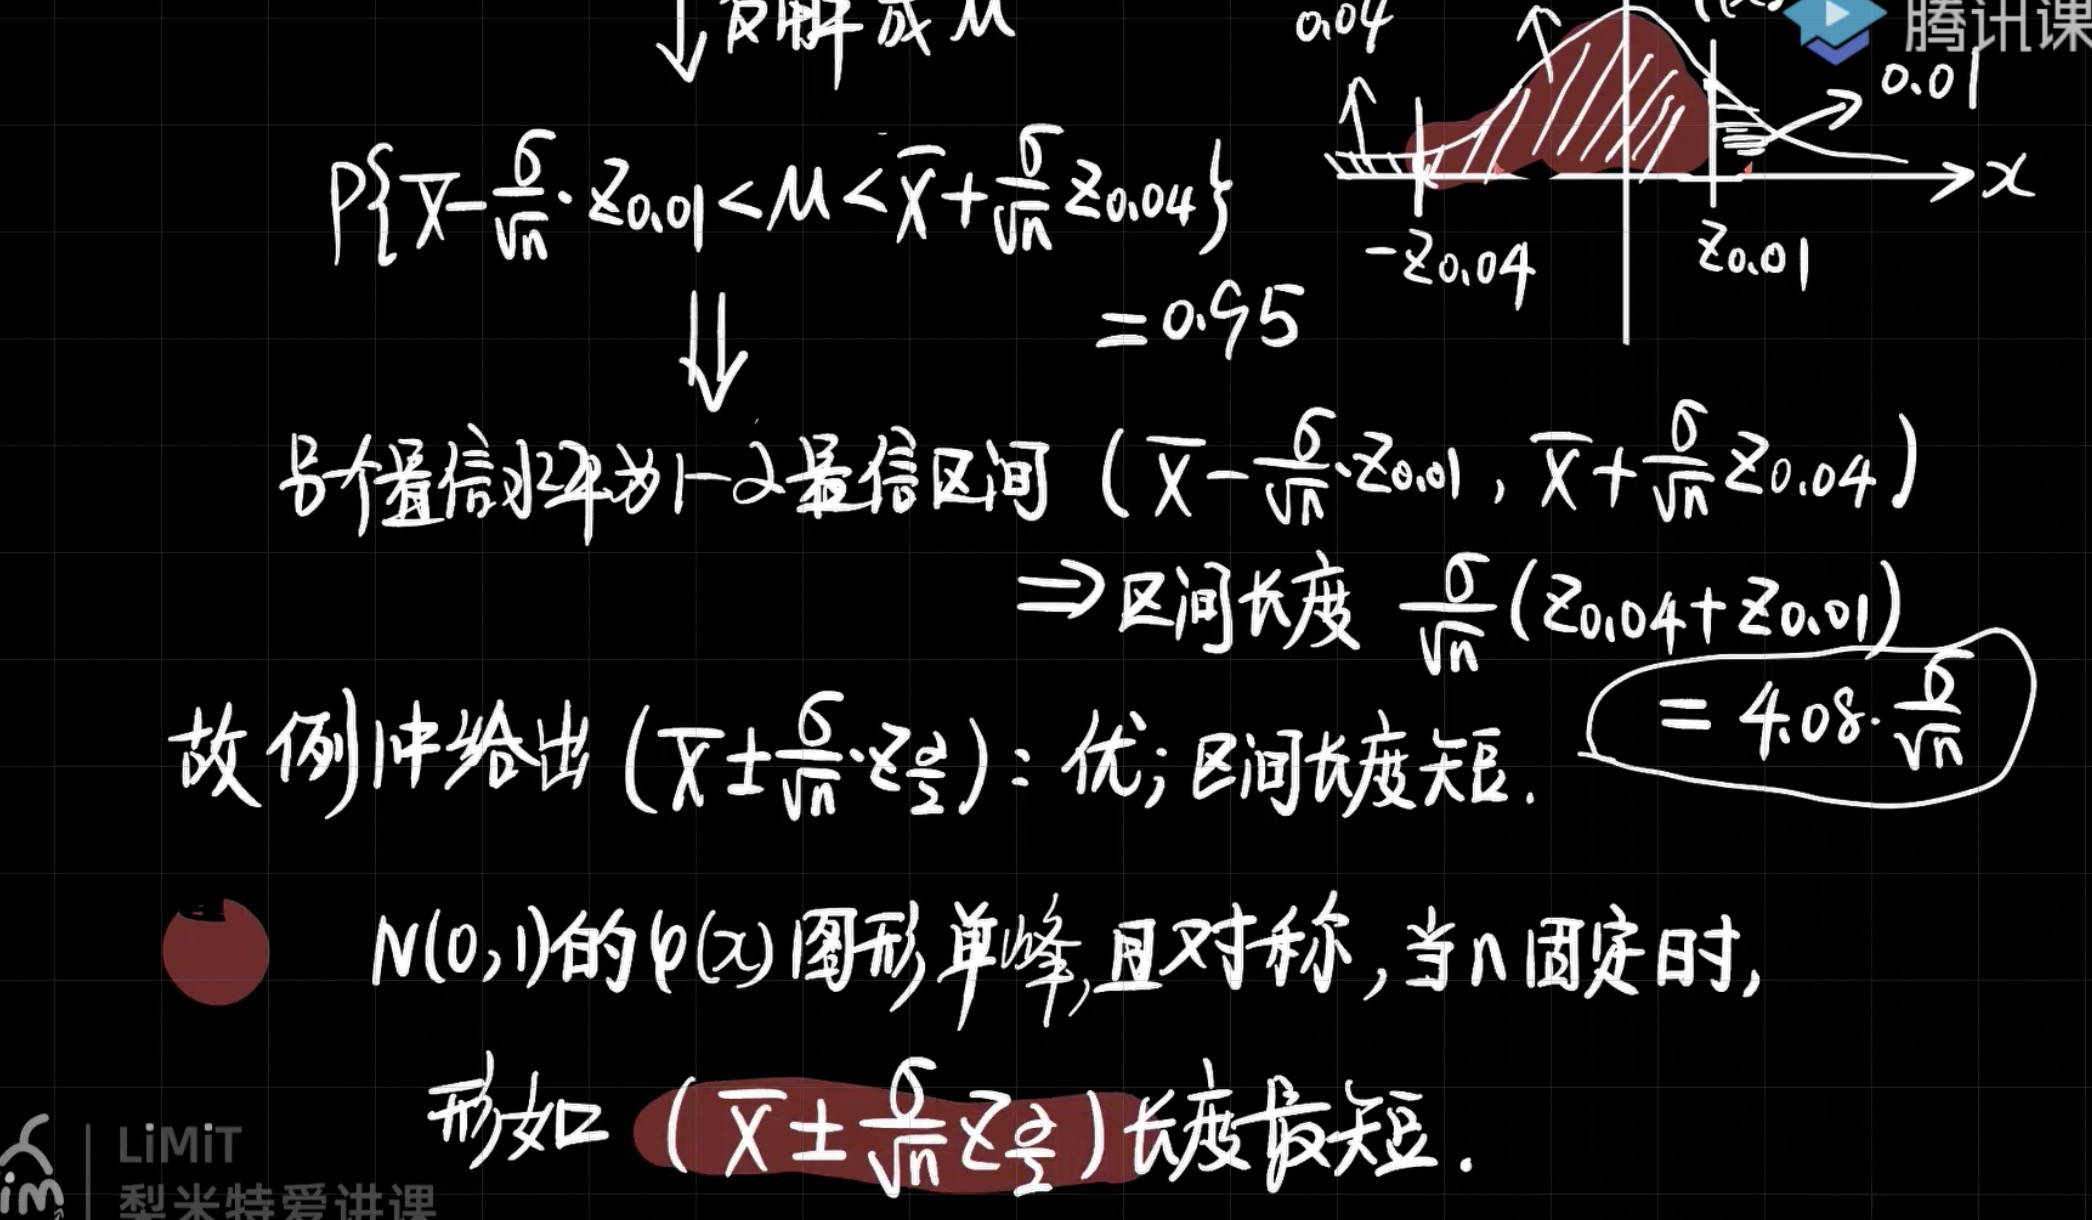 ↓反解成μ
0.04
腾讯课
0.01
P{X̄-σ/√n·Z0.01<μ<X̄+σ/√n Z0.04}
=0.95
-Z0.04
Z0.01
x
⇓
另个置信水平为1-α置信区间 (X̄-σ/√n·Z0.01, X̄+σ/√n Z0.04)
⇒区间长度 σ/√n(Z0.04+Z0.01)
=4.08·σ/√n
故例1中给出(X̄±σ/√n·Zα/2):优;区间长度短.
N(0,1)的φ(x)图形单峰,且对称,当n固定时,
形如(X̄±σ/√n Zα/2)长度最短.
LiMiT
梨米特爱讲课
im